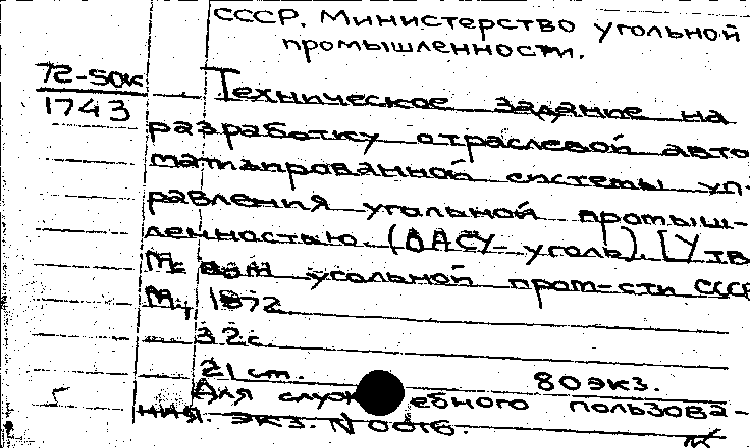 СССР, Министерство угольной
промышленности.
72-50к
1743
Техническое задание на
разработку отраслевой авто
матизированной системы уп-
равления угольной промыш-
ленностью. (ОАСУ-уголь). [Утв
М-вом угольной пром-сти СССР
М., 1972
32с.
21 см. 80 экз.
Для служебного пользова-
ния. Экз. N 0016.